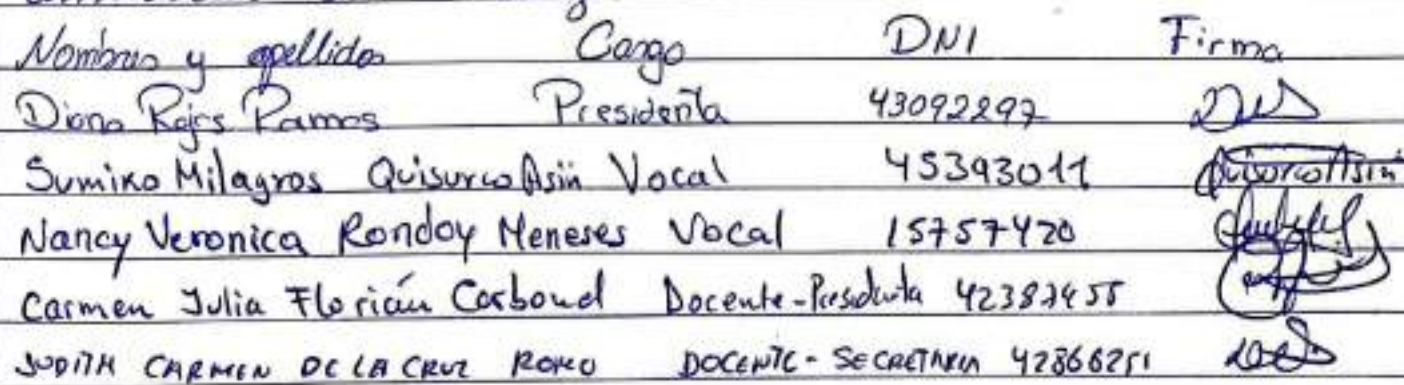 Nombres y apellidos Cargo DNI Firma
Diana Rojas Ramos Presidenta 43092297
Sumiko Milagros Quisurco Asin Vocal 45393011 Quisurco Asin
Nancy Veronica Rondoy Meneses Vocal 15757420
Carmen Julia Florián Carbonel Docente-Presidenta
JUDITH CARMEN DE LA CRUZ ROMO DOCENTE - SECRETARIA 42366251